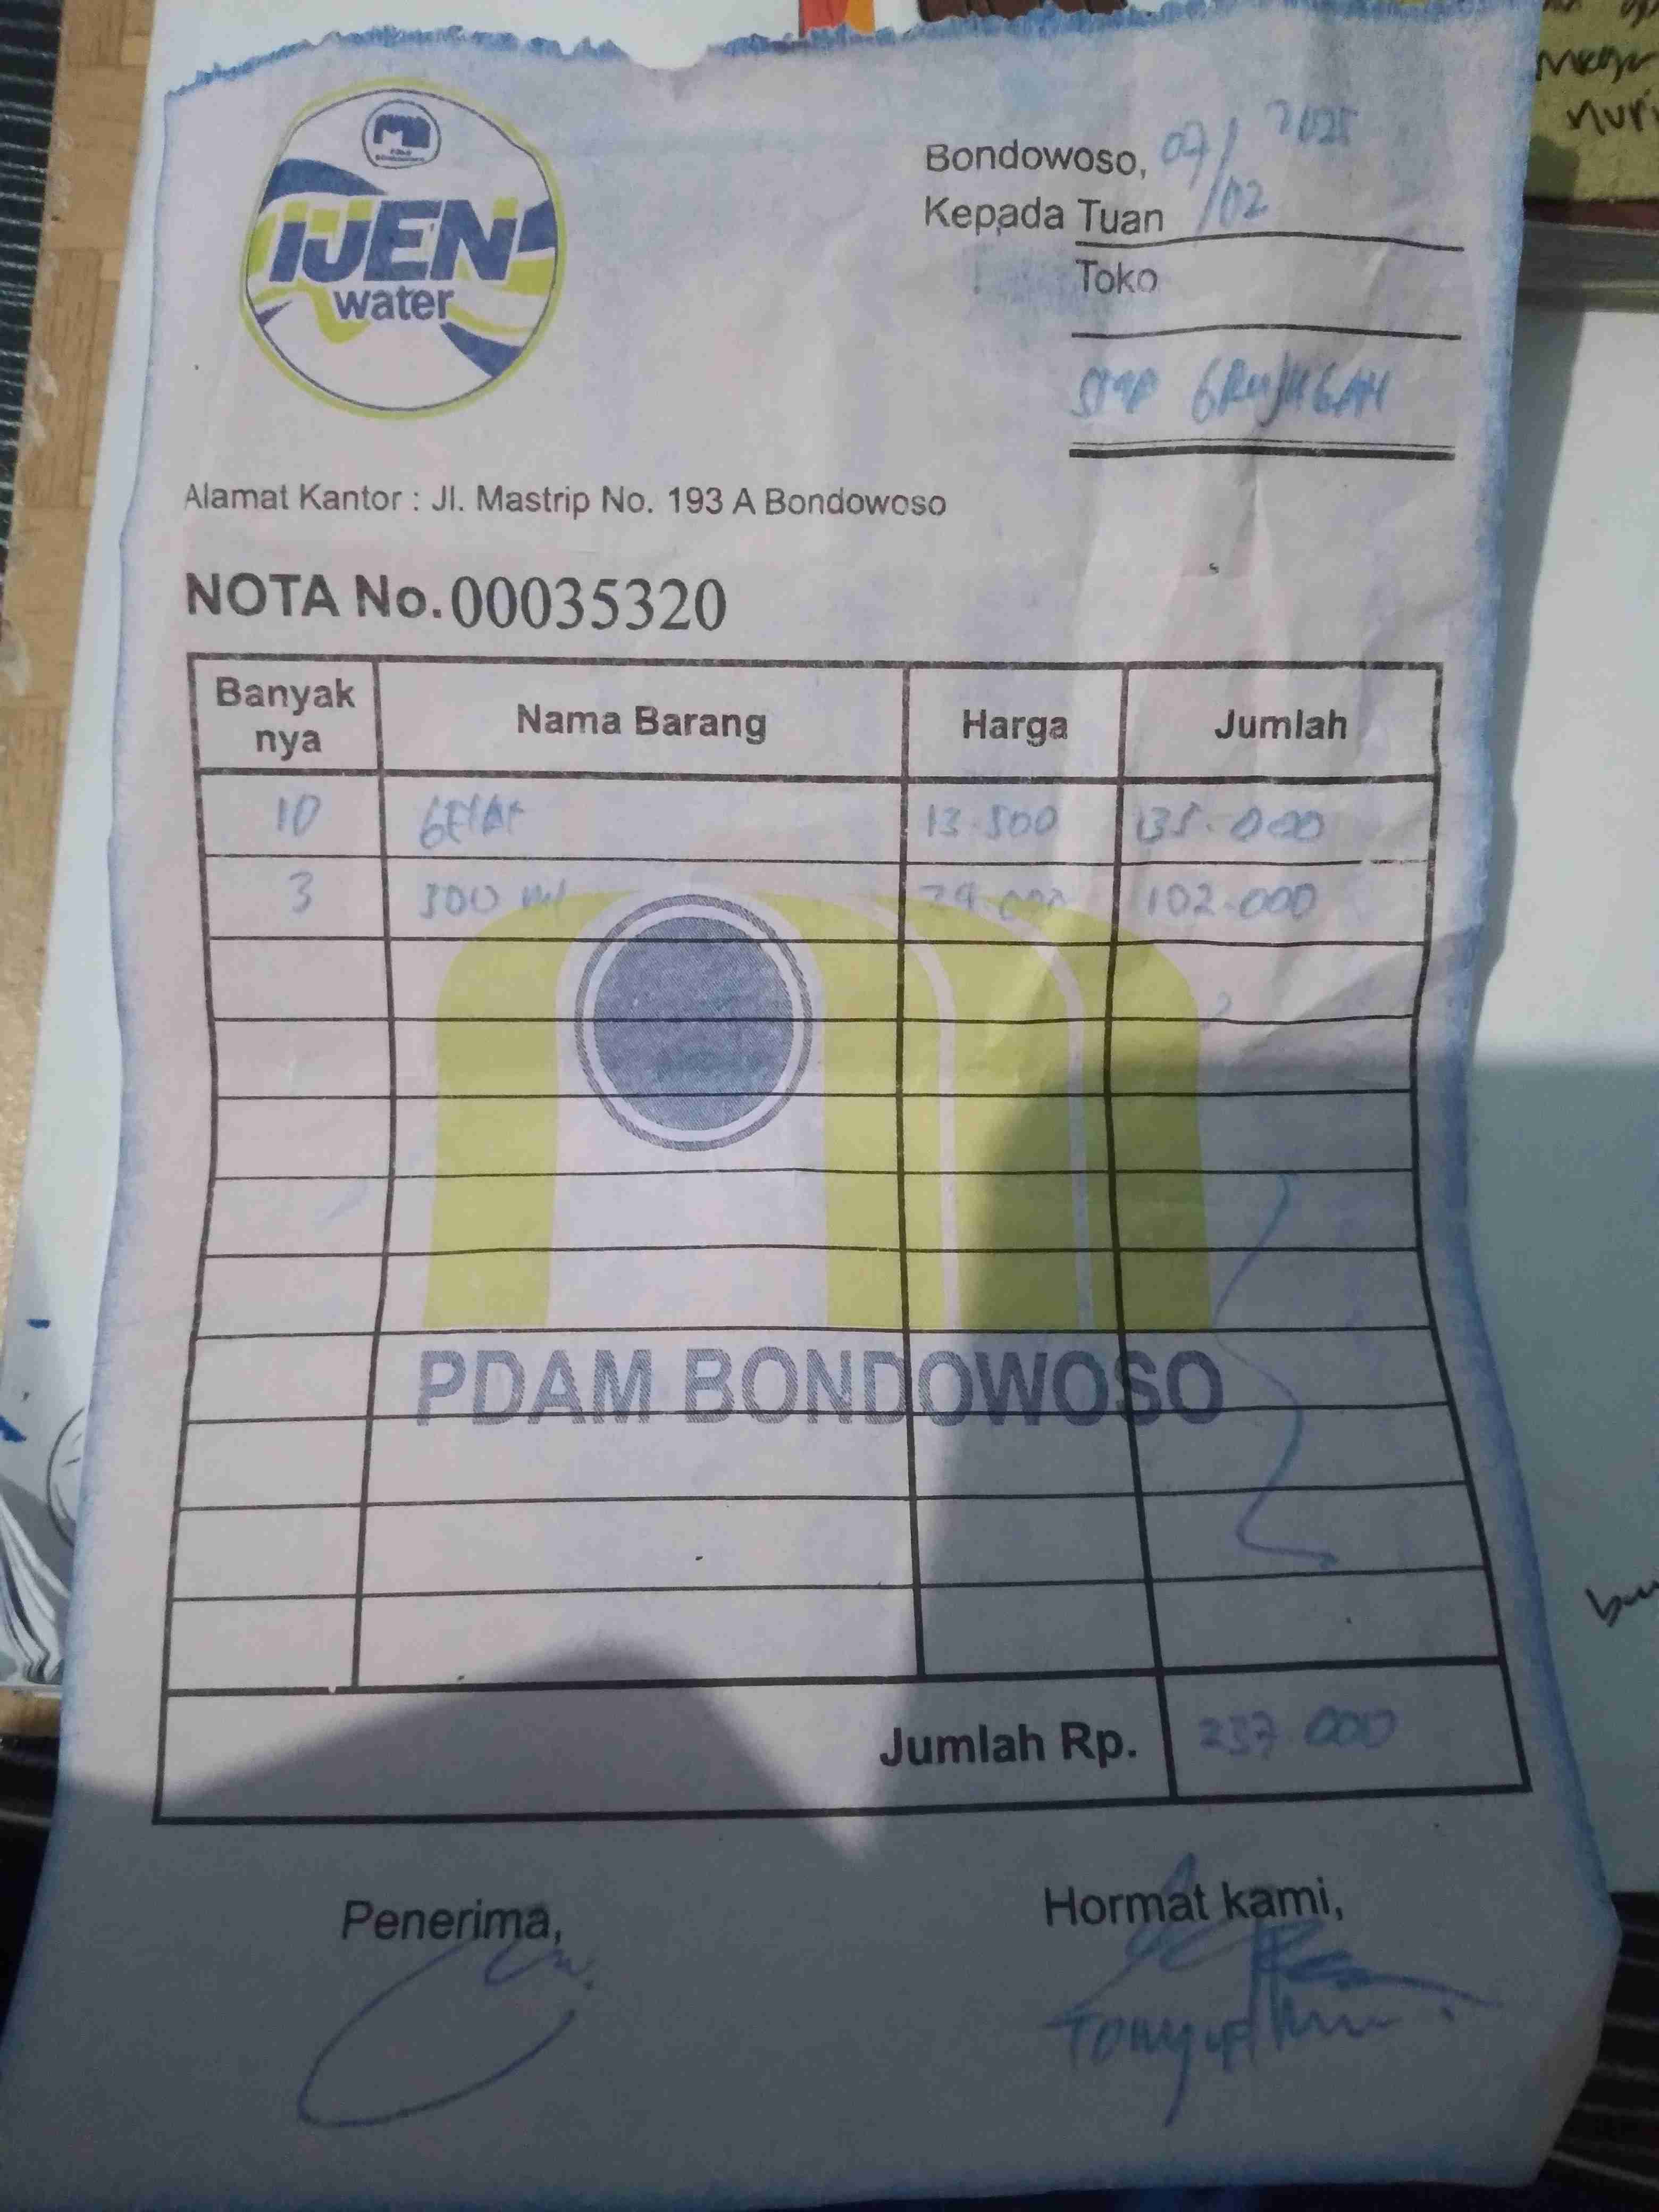 IJEN
water
Bondowoso, 07/02 2025
Kepada Tuan
Toko
SMP GRUJUGAN
Alamat Kantor : Jl. Mastrip No. 193 A Bondowoso
NOTA No. 00035320
Banyak nya Nama Barang Harga Jumlah
10 GELAS 13.500 135.000
3 500 ml 34.000 102.000
PDAM BONDOWOSO
Jumlah Rp. 237.000
Penerima,
Hormat kami,